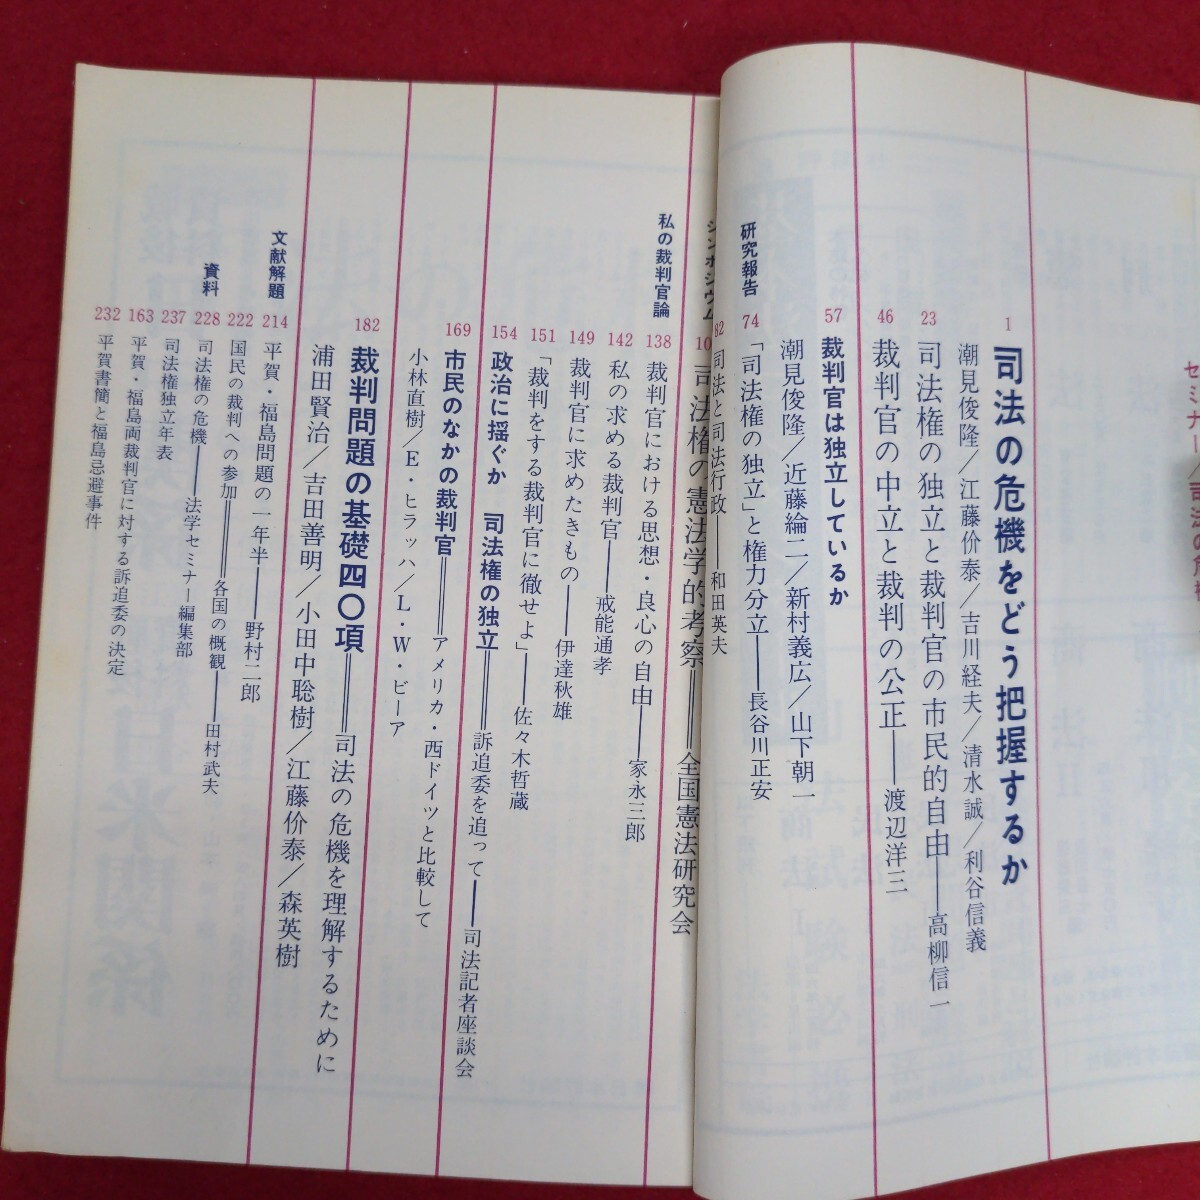 セミナー／司法の危機
1 司法の危機をどう把握するか
潮見俊隆／江藤价泰／吉川経夫／清水誠／利谷信義
23 司法権の独立と裁判官の市民的自由──高柳信一
46 裁判官の中立と裁判の公正──渡辺洋三
57 裁判官は独立しているか
潮見俊隆／近藤綸二／新村義広／山下朝一
研究報告
74 「司法権の独立」と権力分立──長谷川正安
82 司法と司法行政──和田英夫
シンポジウム
10 司法権の憲法学的考察══全国憲法研究会
私の裁判官論
138 裁判官における思想・良心の自由──家永三郎
142 私の求める裁判官──戒能通孝
149 裁判官に求めたきもの──伊達秋雄
151 「裁判をする裁判官に徹せよ」──佐々木哲蔵
154 政治に揺ぐか 司法権の独立══訴追委を追って──司法記者座談会
169 市民のなかの裁判官══アメリカ・西ドイツと比較して
小林直樹／E・ヒラッハ／L・W・ビーア
182 裁判問題の基礎四〇項══司法の危機を理解するために
浦田賢治／吉田善明／小田中聡樹／江藤价泰／森英樹
文献解題
214 平賀・福島問題の一年半──野村二郎
222 国民の裁判への参加══各国の概観──田村武夫
資料
228 司法権の危機──法学セミナー編集部
237 司法権独立年表
163 平賀・福島両裁判官に対する訴追委の決定
232 平賀書簡と福島忌避事件